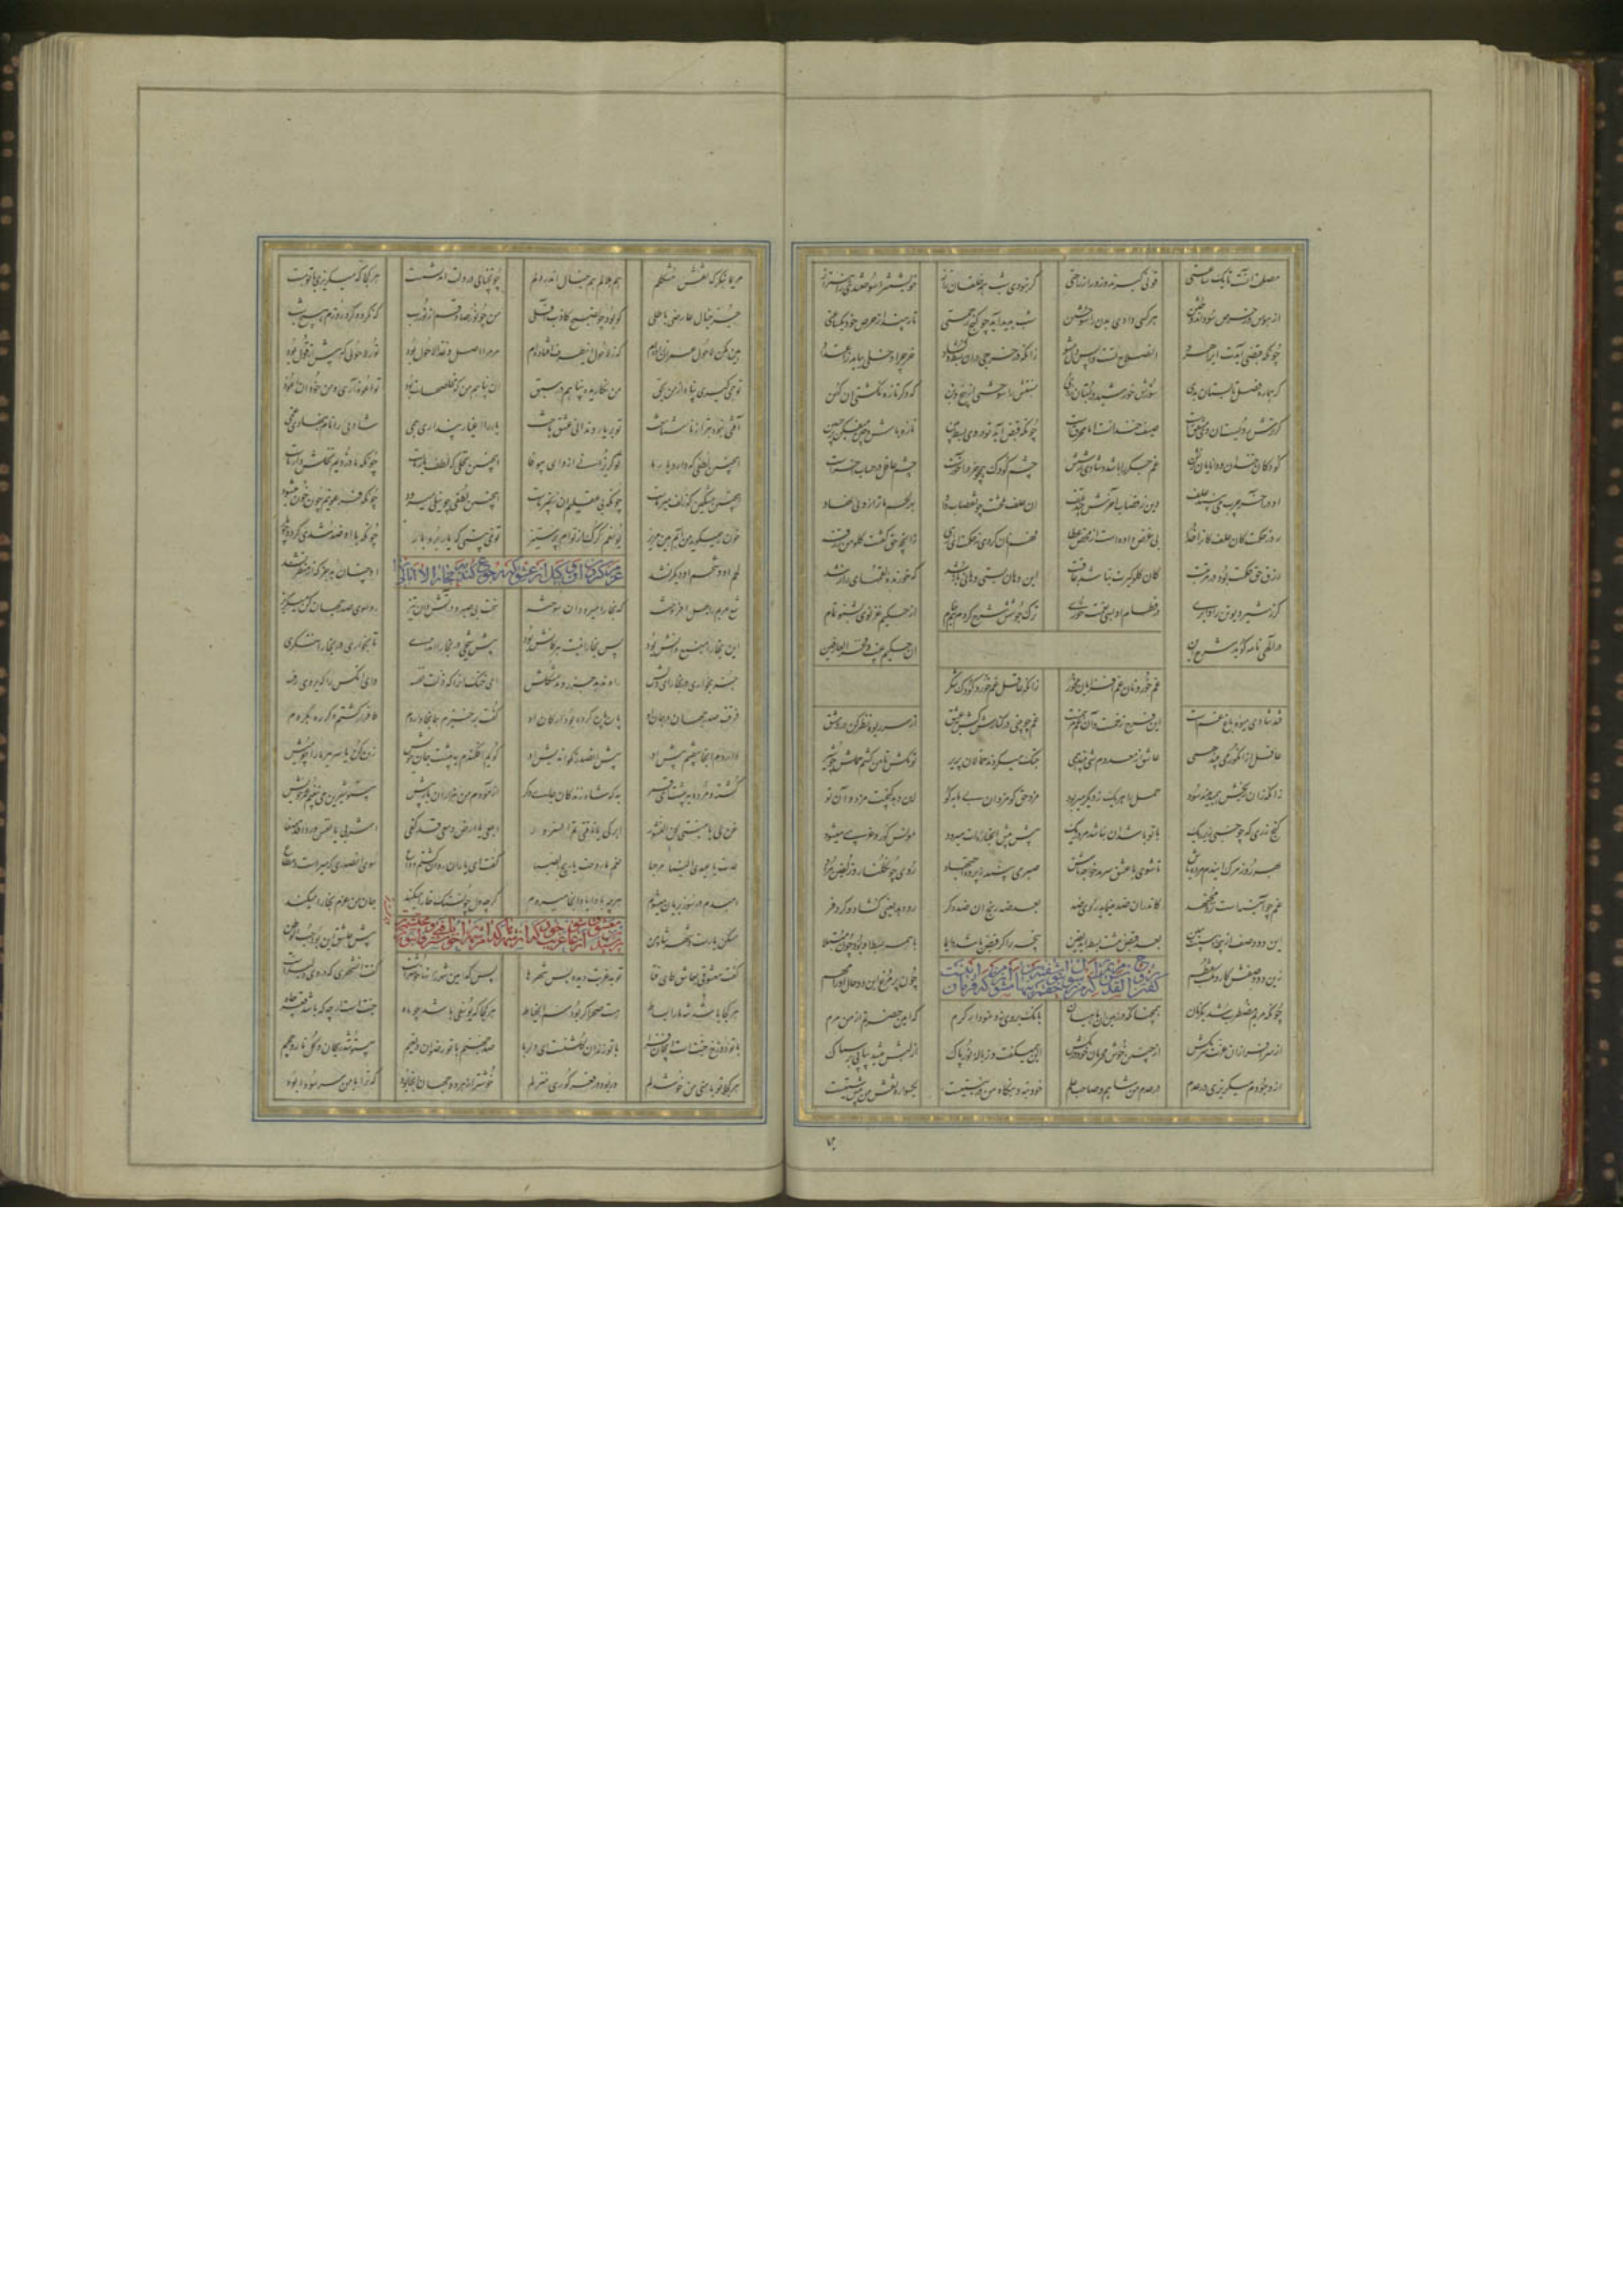 مصلحت آنست تا یک ساعتی قوتی گیرند و زور از راحتی گر نبودی شب همه خلقان ز آز خویشتن را سوختندی ز اهتزاز
از هوس وز حرص سود اندوختن هر کسی دادی بدن را سوختن شب پدید آید چو گنج رحمتی تا رهند از حرص خود یکساعتی
چونکه قبضی آیدت ای راه رو آن صلاح تست آیس دل مشو زانکه در خرجی در آن بسط و گشاد خرج را دخلی بباید ز اعتداد
گر هماره فصل تابستان بدی سوزش خورشید در بستان زدی منبتش را سوختی از بیخ و بن که دگر تازه نگشتی آن کهن
گر ترش رویست آن دی مشفقست صیف خندانست اما محرقست چونکه قبض آید تو در وی بسط بین تازه باش و چین میفکن در جبین
کودکان خندان و دانایان ترش غم جگر را باشد و شادی ز شش چشم کودک همچو خر در آخرست چشم عاقل در حساب آخرست
او در آخر چرب می بیند علف وین ز قصاب آخرش بیند تلف آن علف تلخست چو قصاب داد بهر لحم ما ترازویی نهاد
رو ز حکمت علف کانرا خدا بی غرض داده است از محض عطا فهم نان کردی نه حکمت ای رهی زانچه حق گفتت کلوا من رزقه
رزق حق حکمت بود در مرتبت کان گلوگیرت نباشد عاقبت این دهان بستی دهانی باز شد که خورنده لقمهای راز شد
گر ز شیر دیو تن را وابری در فطام او بسی نعمت خوری ترک جوشش شرح کردم نیم خام از حکیم غزنوی بشنو تمام
در الهی نامه گوید شرح این آن حکیم غیب و فخر العارفین
غم خور و نان غم افزایان مخور زانکه عاقل غم خورد کودک شکر
قند شادی میوه باغ غمست این فرح زخمست وآن غم مرهمست غم چو بینی در کنارش کش بعشق از سر ربوه نظر کن در دمشق
عاقل از انگور می بیند همی عاشق از معدوم شی بیند همی جنگ میکردند حمالان پریر تو مکش تا من کشم حملش چو شیر
زانکه زان رنجش همی دیدند سود حمل را هر یک ز دیگر میربود مزد حق کو مزد آن بی مایه کو این دهد گنجیت مزد و آن تسو
گنج زری که چو خسپی زیر ریگ با تو باشد آن نباشد مرده ریگ پیش پیش آن جنازت میدود مونس گور و غریبی میشود
بهر روز مرگ این دم مرده باش تا شوی با عشق سرمد خواجه تاش صبر می بیند ز پرده اجتهاد روی چو گلنار و زلفین مراد
غم چو آیینه است پیش مجتهد کاندران ضد مینماید روی ضد بعد ضد رنج آن ضد دگر رو دهد یعنی گشاد و کر و فر
این دو وصف از پنجه دستت ببین بعد قبض مشت بسط آید یقین پنجه را گر قبض باشد دایما یا همه بسط او بود چون مبتلا
زین دو وصفش کار و مکسب منتظم چون پر مرغ این دو حال او را مهم
گفتن روح القدس مریم را که من رسول حقم بتو آشفته مشو و پنهان مشو که فرمان اینست
چونکه مریم مضطرب شد یکزمان همچنانکه در زمین آن ماهیان بانگ بر وی زد نمودار کرم که امین حضرتم از من مرم
از سرافرازان عزت سر مکش از چنین خوش محرمان خود درمکش این همیگفت و ذباله نور پاک از لبش میشد پیاپی بر سماک
از وجودم میگریزی در عدم در عدم من شاهم و صاحب علم خود بنه و بنگاه من در نیستیست یکسواره نقش من پیش ستیست
مریما بنگر که نقش مشکلم هم هلالم هم خیال اندر دلم چو خیالی در دلت آمد نشست هر کجا که میگریزی با توست
جز خیال عارضی باطلی کو بود چو صبح کاذب آفلی من چو صبح صادقم از نور رب که نگردد گرد روزم هیچ شب
هین مکن لاحول عمران زاده ام که ز لاحول این طرف افتاده ام مر مرا اصل و غذا لاحول بود نور لاحولی که پیش از قول بود
تو همی گیری پناه از من بحق من نگاریده پناهم در سبق آن پناهم من که مخلصهات بود تو اعوذ آری و من خود آن اعوذ
آفتی نبود بتر از ناشناخت تو بر یار و ندانی عشق باخت یار را اغیار پنداری همی شادیی را نام بنهادی غمی
اینچنین لطفی که دارد یار ما تو گریزانی ازو ای بیوفا اینچنین نخلی که لطف یار ماست چونکه ما دزدیم نخلش دار ماست
اینچنین مشکین که زلف میر ماست چونکه بی عقلیم آن زنجیر ماست اینچنین لطفی چو نیلی میرود چونکه فرعونیم چون خون میشود
خون همیگوید من آبم هین مریز یوسفم گرگ از توام ای پر ستیز تو نمی بینی که یار بردبار چونکه با او ضد شدی گردد چو مار
لحم او و شحم او دیگر نشد او چنان بد جز که از منظر نشد
عزم کردن آن وکیل از عشق که رجوع کند به بخارا لاابالی وار
شمع مریم را بهل افروخته که بخارا میرود آن سوخته سخت بی صبر و در آتشدان تیز رو سوی صدر جهان کن میگریز
این بخارا منبع دانش بود پس بخاراییست هر کانش بود پیش شیخی در بخارا اندری تا بخواری در بخارا ننگری
جز بخواری در بخارای دلش راه ندهد جزر و مد مشکلش ای خنک آنرا که ذلت نفسه وای آنکس را که یردی رفسه
فرقت صدر جهان در جان او پاره پاره کرده بود ارکان او گفت برخیزم همآنجا واروم کافر ار گشتم دگر ره بگروم
واروم آنجا بیفتم پیش او پیش آن صدر نکواندیش او گویم افکندم به پیشت جان خویش زنده کن یا سر ببر ما را چو میش
کشته و مرده به پیشت ای قمر به که شاه زندگان جای دگر آزمودم من هزاران بار بیش بی تو شیرین می نبینم عیش خویش
غن لی یا منیتی لحن النشور ابرکی یا ناقتی تم السرور ابلعی یا ارض دمعی قد کفی اشربی یا نفس وردا قد صفا
عدت یا عیدی الینا مرحبا نعم ما روحت یا ریح الصبا گفت ای یاران روان گشتم وداع سوی آن صدری که میر است و مطاع
دمبدم در سوز بریان میشوم هرچه بادا باد آنجا میروم گرچه دل چون سنگ خارا میکند جان من عزم بخارا میکند
مسکن یارست و شهر شاه من پیش عاشق این بود حب الوطن
پرسیدن معشوقی از عاشق غریب خود که از شهرها کدام شهر را خوشتر یافتی
گفت معشوقی بعاشق کای فتا تو بغربت دیده بس شهرها پس کدامین شهر زانها خوشترست گفت آن شهری که در وی دلبرست
هر کجا باشد شه ما را بساط هست صحرا گر بود سم الخیاط هر کجا که یوسفی باشد چو ماه جنت است ارچه که باشد قعر چاه
با تو دوزخ جنت است ای جان فزا با تو زندان گلشنست ای دلربا
هر کجا تو با منی من خوشدلم ور بود در قعر گوری منزلم خوشتر از هر دو جهان آنجا بود که ترا با من سر و سودا بود